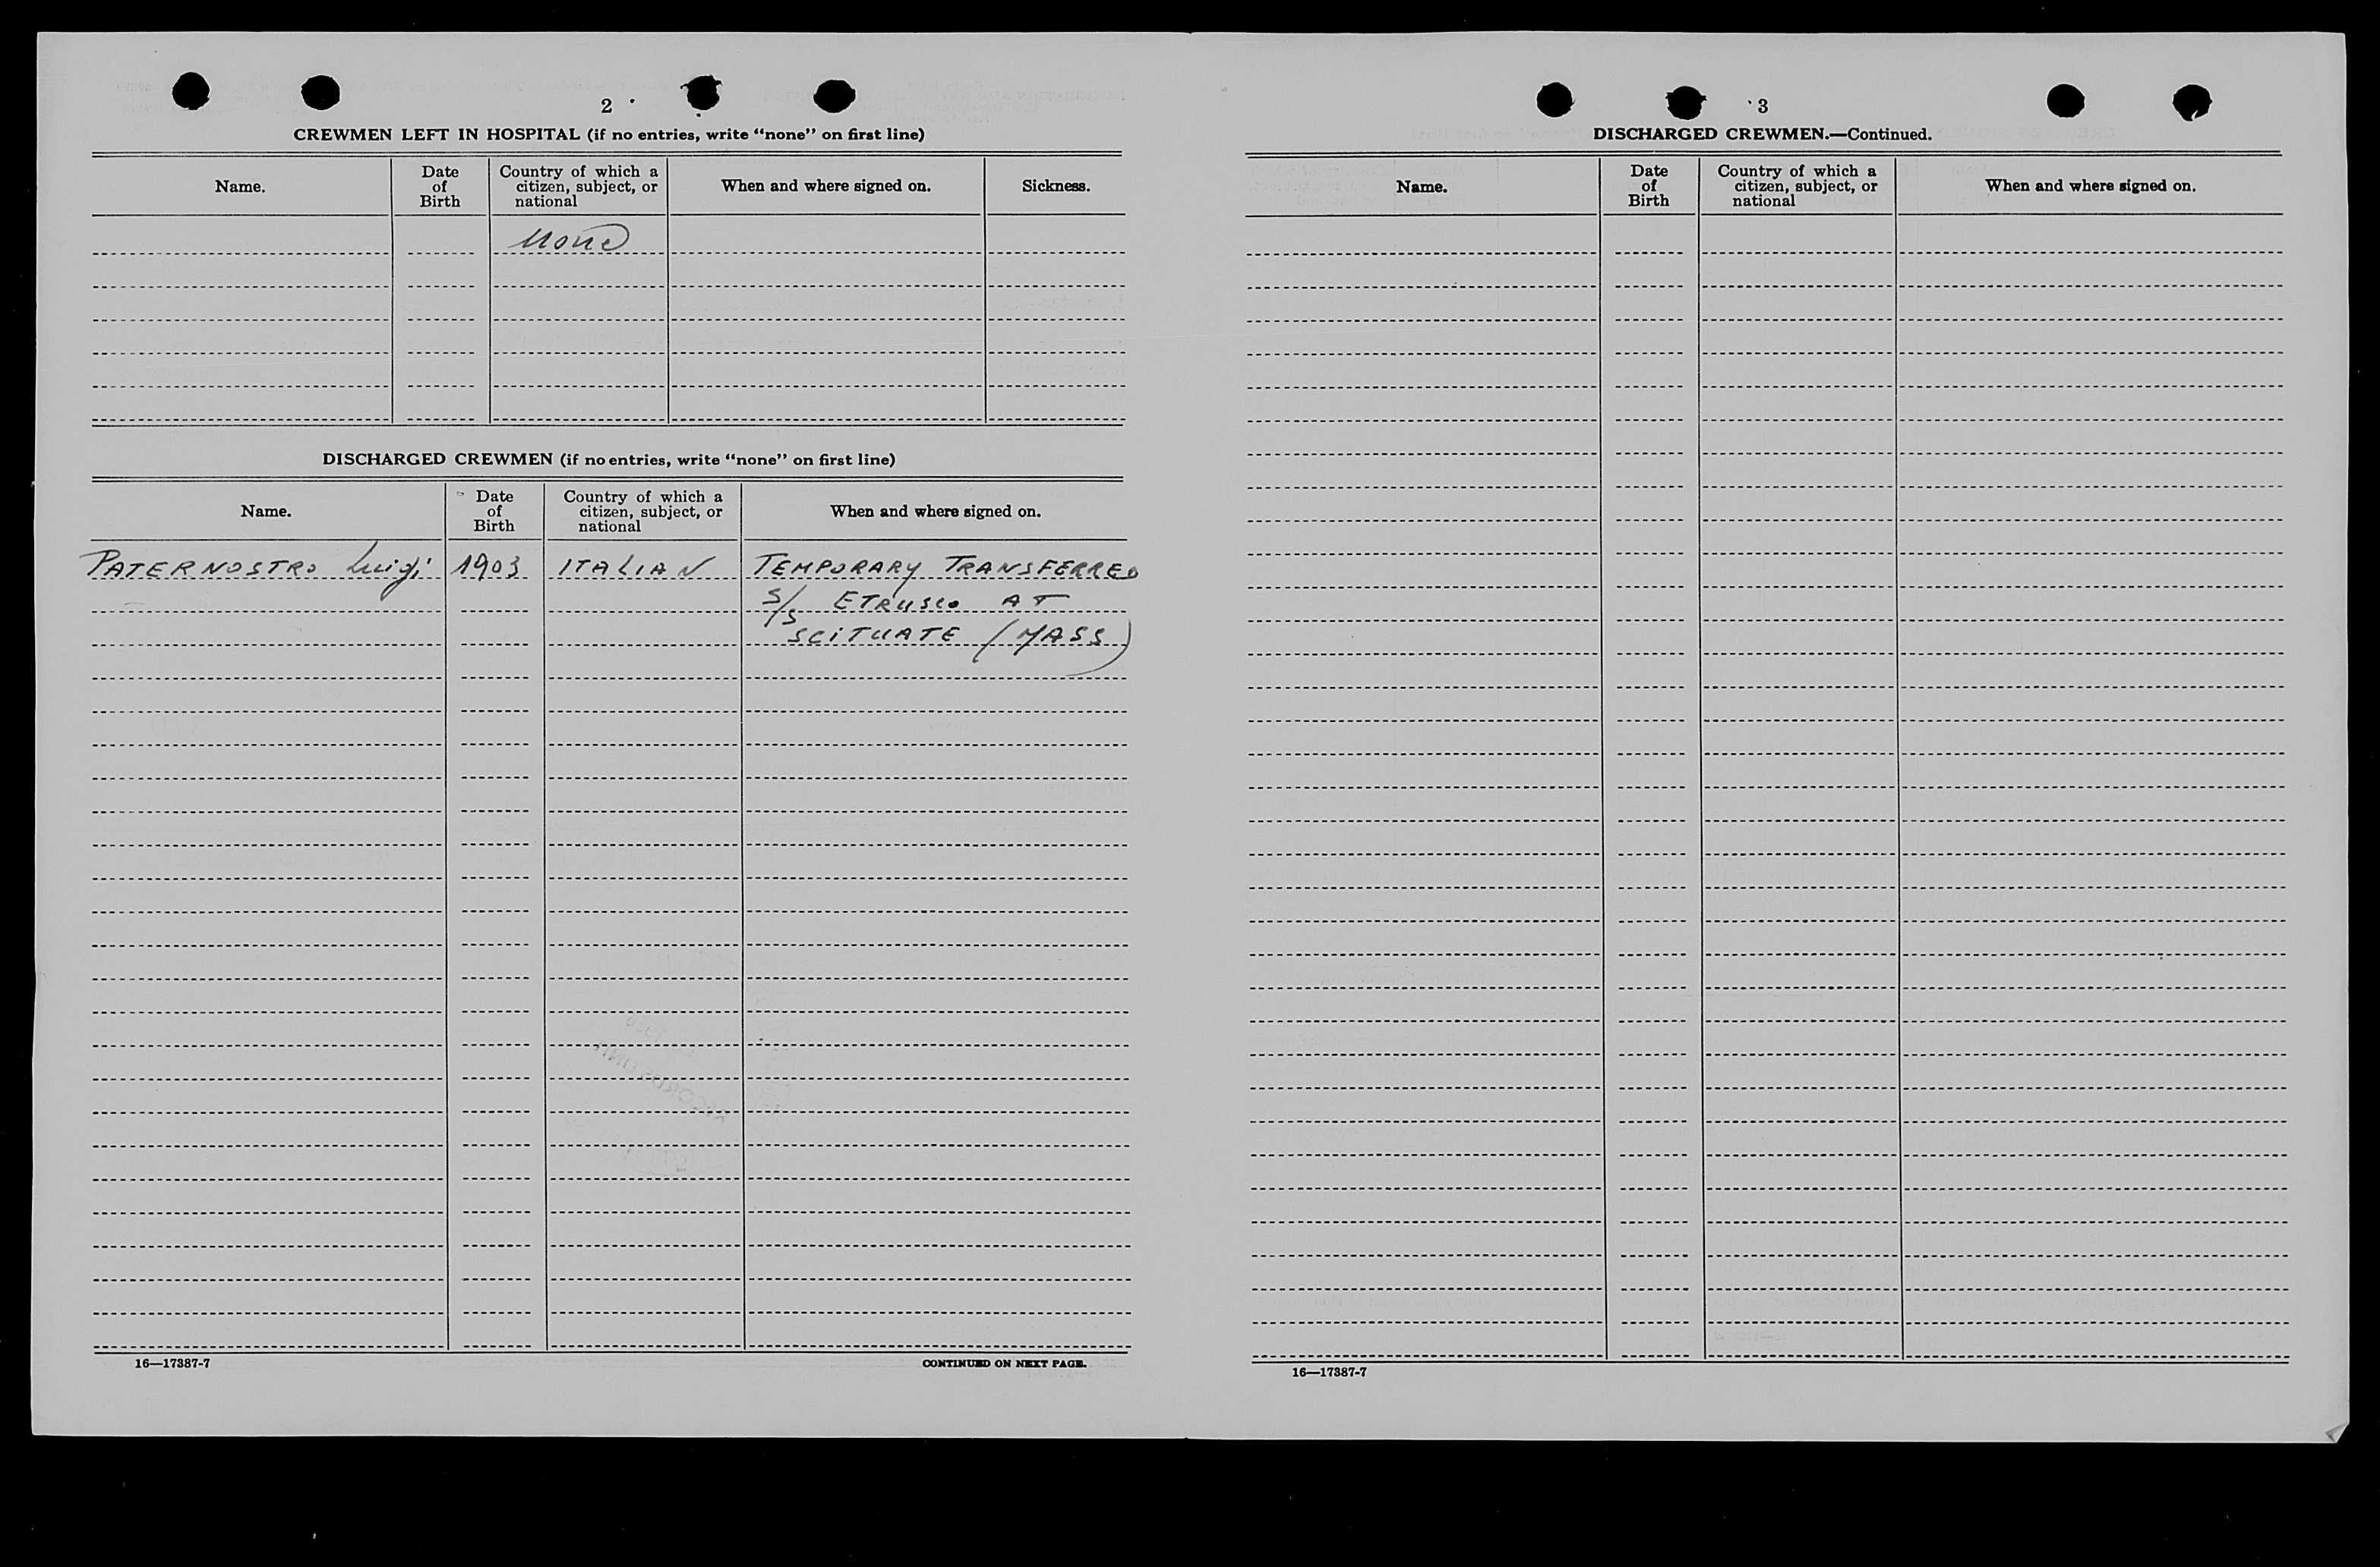 2
CREWMEN LEFT IN HOSPITAL (if no entries, write “none” on first line)
Name.
Date of Birth
Country of which a citizen, subject, or national
When and where signed on.
Sickness.
None
DISCHARGED CREWMEN (if no entries, write “none” on first line)
Name.
Date of Birth
Country of which a citizen, subject, or national
When and where signed on.
PATERNOSTRO Luigi 1903 ITALIAN TEMPORARY TRANSFERRED
S/S ETRUSCO AT
SCITUATE (MASS)
16—17387-7
CONTINUED ON NEXT PAGE.
3
DISCHARGED CREWMEN.—Continued.
Name.
Date of Birth
Country of which a citizen, subject, or national
When and where signed on.
16—17387-7